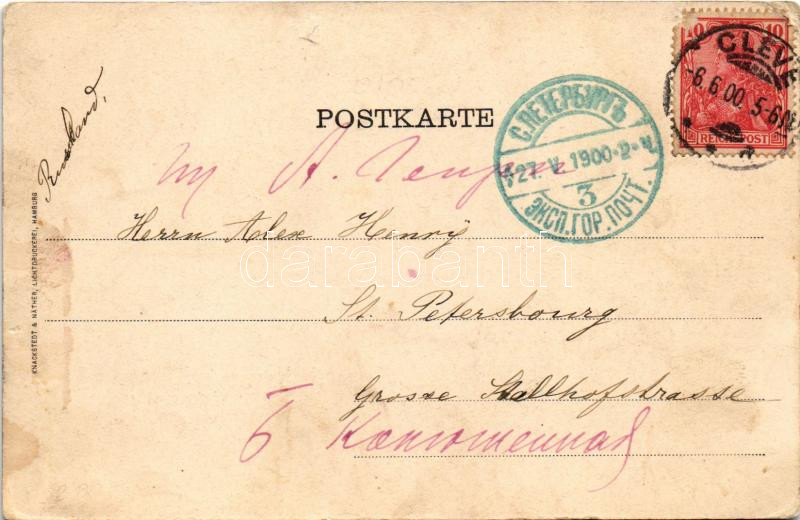 10 10
CLEVE
-6.6.00. 5-6N
REICHSPOST
POSTKARTE
С.ПЕТЕРБУРГЪ
27. V. 1900-2-
3
ЭКСП.ГОР.ПОЧТ.
А. Генри
Herrn Alex Henrÿ
St. Petersbourg
Grosse Stallhofstrasse
Б Конюшенная
KNACKSTEDT & NÄTHER, LICHTDRUCKEREI, HAMBURG
darabanth